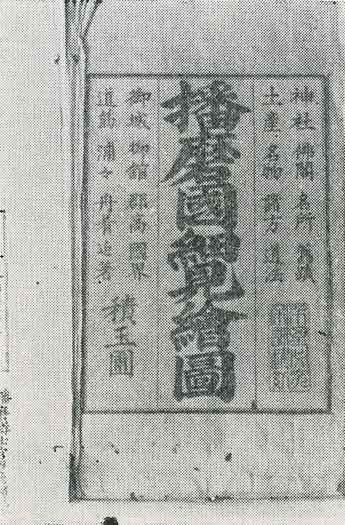 神社 佛閣 名所 舊跡
土産 名物 諸方 道法
播磨國細見繪圖
御城 御舘 郡高 國界
道筋 浦々 舟着
積玉圃